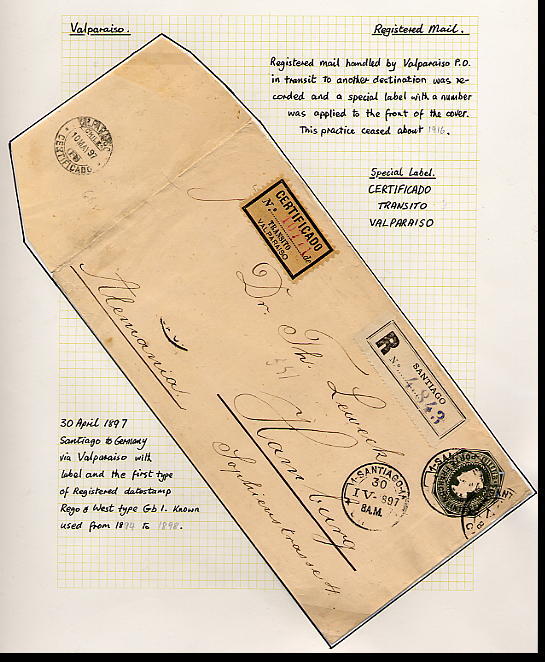 Valparaiso.
Registered Mail.
Registered mail handled by Valparaiso P.O.
in transit to another destination was re-
corded and a special label with a number
was applied to the front of the cover.
This practice ceased about 1916.
Special Label.
CERTIFICADO
TRANSITO
VALPARAISO
10 MAI 97
CERTIFICADO
CERTIFICADO
No.
de
TRANSITO
VALPARAISO
Alemania
Dr. Th.
Hamburg
Sophienstrasse
R
SANTIAGO
No. 4843
SANTIAGO
30
IV-897
8 A.M.
30 April 1897
Santiago to Germany
via Valparaiso with
label and the first type
of Registered datestamp
Rego & West type Gb 1. Known
used from 1894 to 1898.